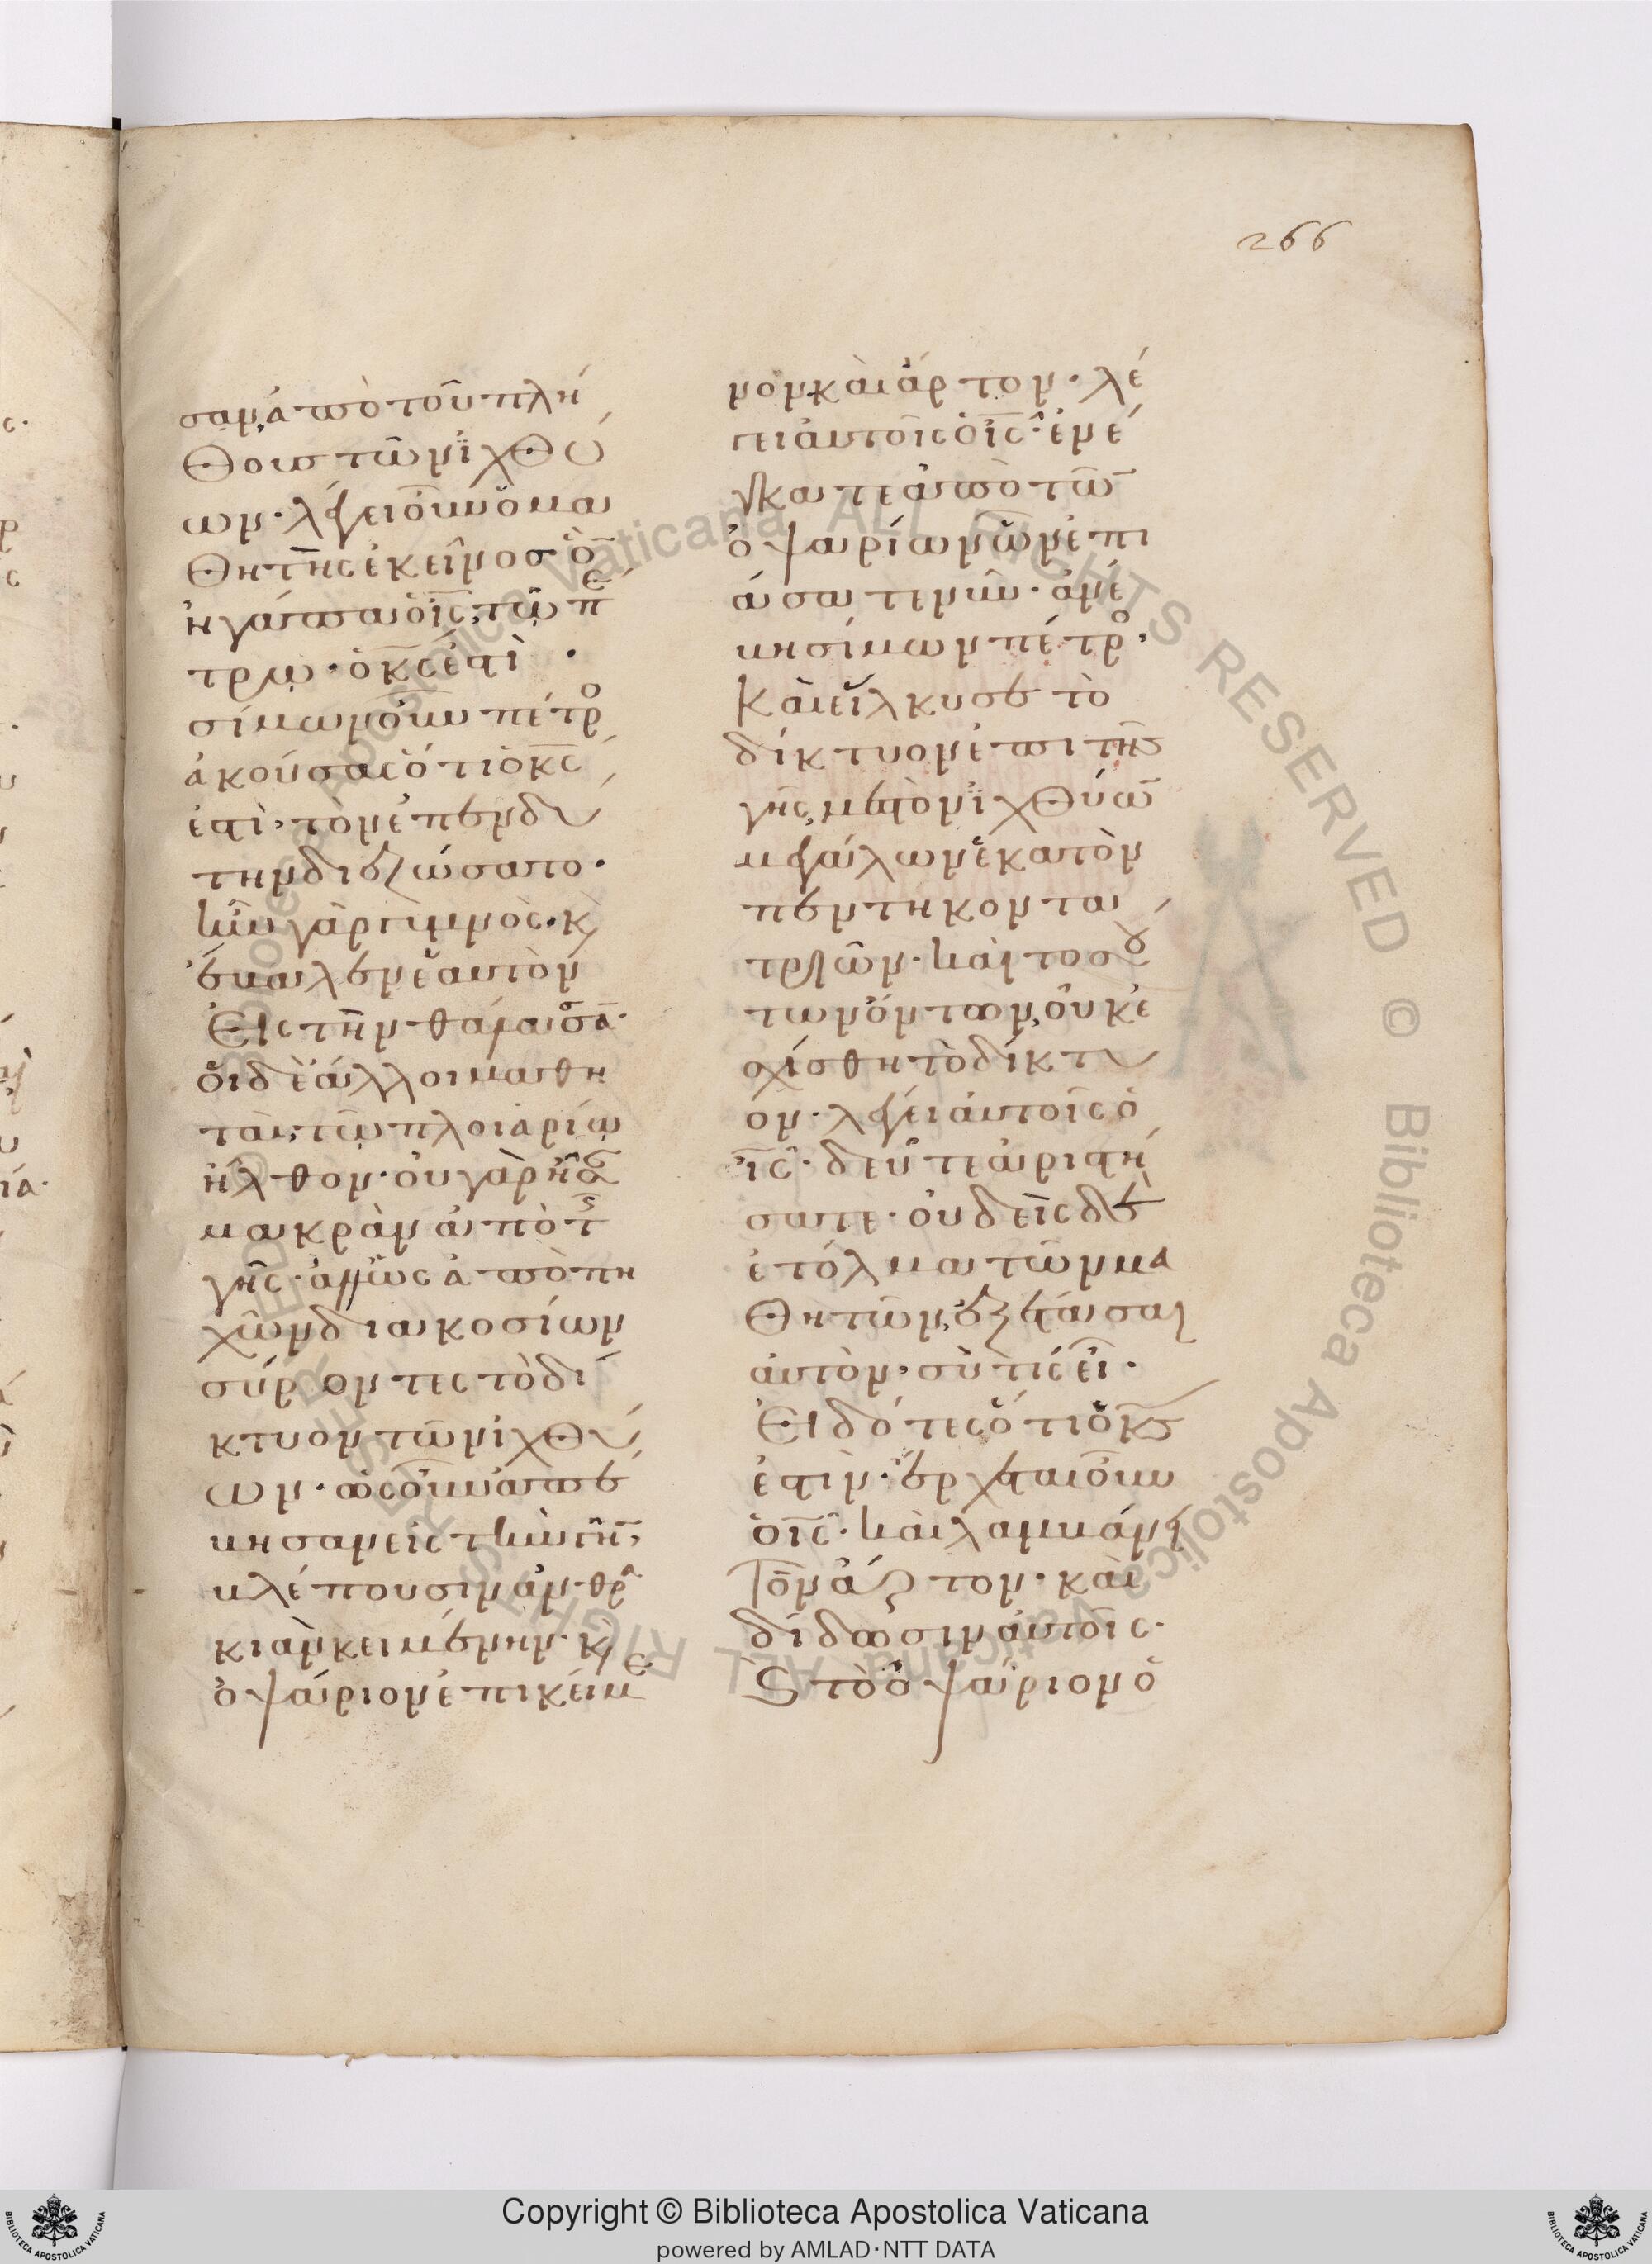 266
σαν, ἀπὸ τοῦ πλή
θους τῶν ἰχθύ
ων· λέγει οὖν ὁ μα
θητὴς ἐκεῖνος ὃν
ἠγάπα ὁ ις, τῷ πέ
τρω· ὁ κς ἐστὶ·
σίμων οὖν πέτρο
ἀκούσας ὅτι ὁ κς
ἐστὶ, τὸν ἐπενδύ
την διεζώσατο·
ἦν γὰρ γυμνὸς· κ
ἔβαλεν ἑαυτὸν
εἰς τὴν θάλασσα·
οἱ δὲ ἄλλοι μαθη
ταὶ, τῷ πλοιαρίῳ
ἦλθον· οὐ γὰρ ἦσα
μακρὰν ἀπὸ τῆς
γῆς· ἀλλ' ὡς ἀπὸ πη
χῶν διακοσίων
σύροντες τὸ δί
κτυον τῶν ἰχθύ
ων· ὡς οὖν ἀπέ
βησαν εἰς τὴν γῆν,
βλέπουσιν ἀνθρα
κιὰν κειμένην· κ
ὀψάριον ἐπικείμε
νον καὶ ἄρτον· λέ
γει αὐτοῖς ὁ ις· ἐνέ
γκατε ἀπὸ τῶν
ὀψαρίων ὧν ἐπι
άσατε νῦν· ἀνέ
βη σίμων πέτρο,
καὶ εἵλκυσε τὸ
δίκτυον ἐπὶ τῆς
γῆς, μεστὸν ἰχθύων
μεγάλων ἑκατὸν
πεντηκοντα
τριῶν· καὶ τοσού
των ὄντων, οὐκ ἐ
σχίσθη τὸ δίκτυ
ον· λέγει αὐτοῖς ὁ
ις· δεῦτε ἀριστή
σατε· οὐδεὶς δὲ
ἐτόλμα τῶν μα
θητῶν, ἐξετάσαι
αὐτὸν, σὺ τίς εἶ·
εἰδότες ὅτι ὁ κς
ἐστιν· ἔρχεται οὖν
ὁ ις· καὶ λαμβάνει
τὸν ἄρτον· καὶ
δίδωσιν αὐτοῖς·
κ τὸ ὀψάριον ὁ
Copyright © Biblioteca Apostolica Vaticana
powered by AMLAD·NTT DATA